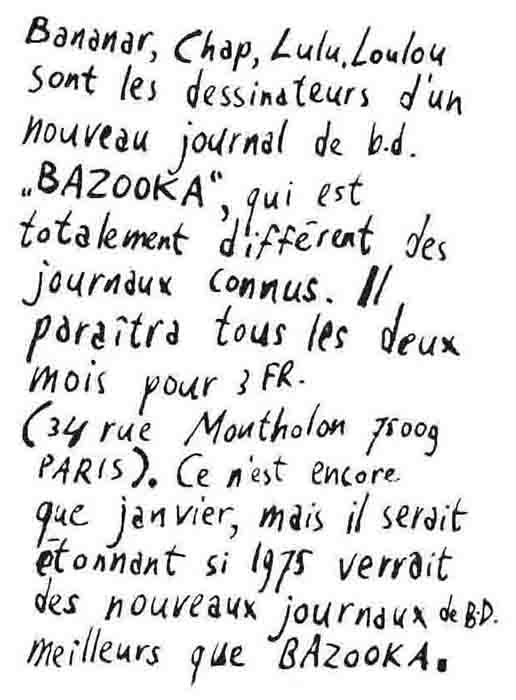 Bananar, Chap, Lulu, Loulou
sont les dessinateurs d'un
nouveau journal de b.d.
„BAZOOKA“, qui est
totalement différent des
journaux connus. Il
paraîtra tous les deux
mois pour 3 FR.
(34 rue Moutholon 75009
PARIS). Ce n'est encore
que janvier, mais il serait
étonnant si 1975 verrait
des nouveaux journaux de B.D.
meilleurs que BAZOOKA.